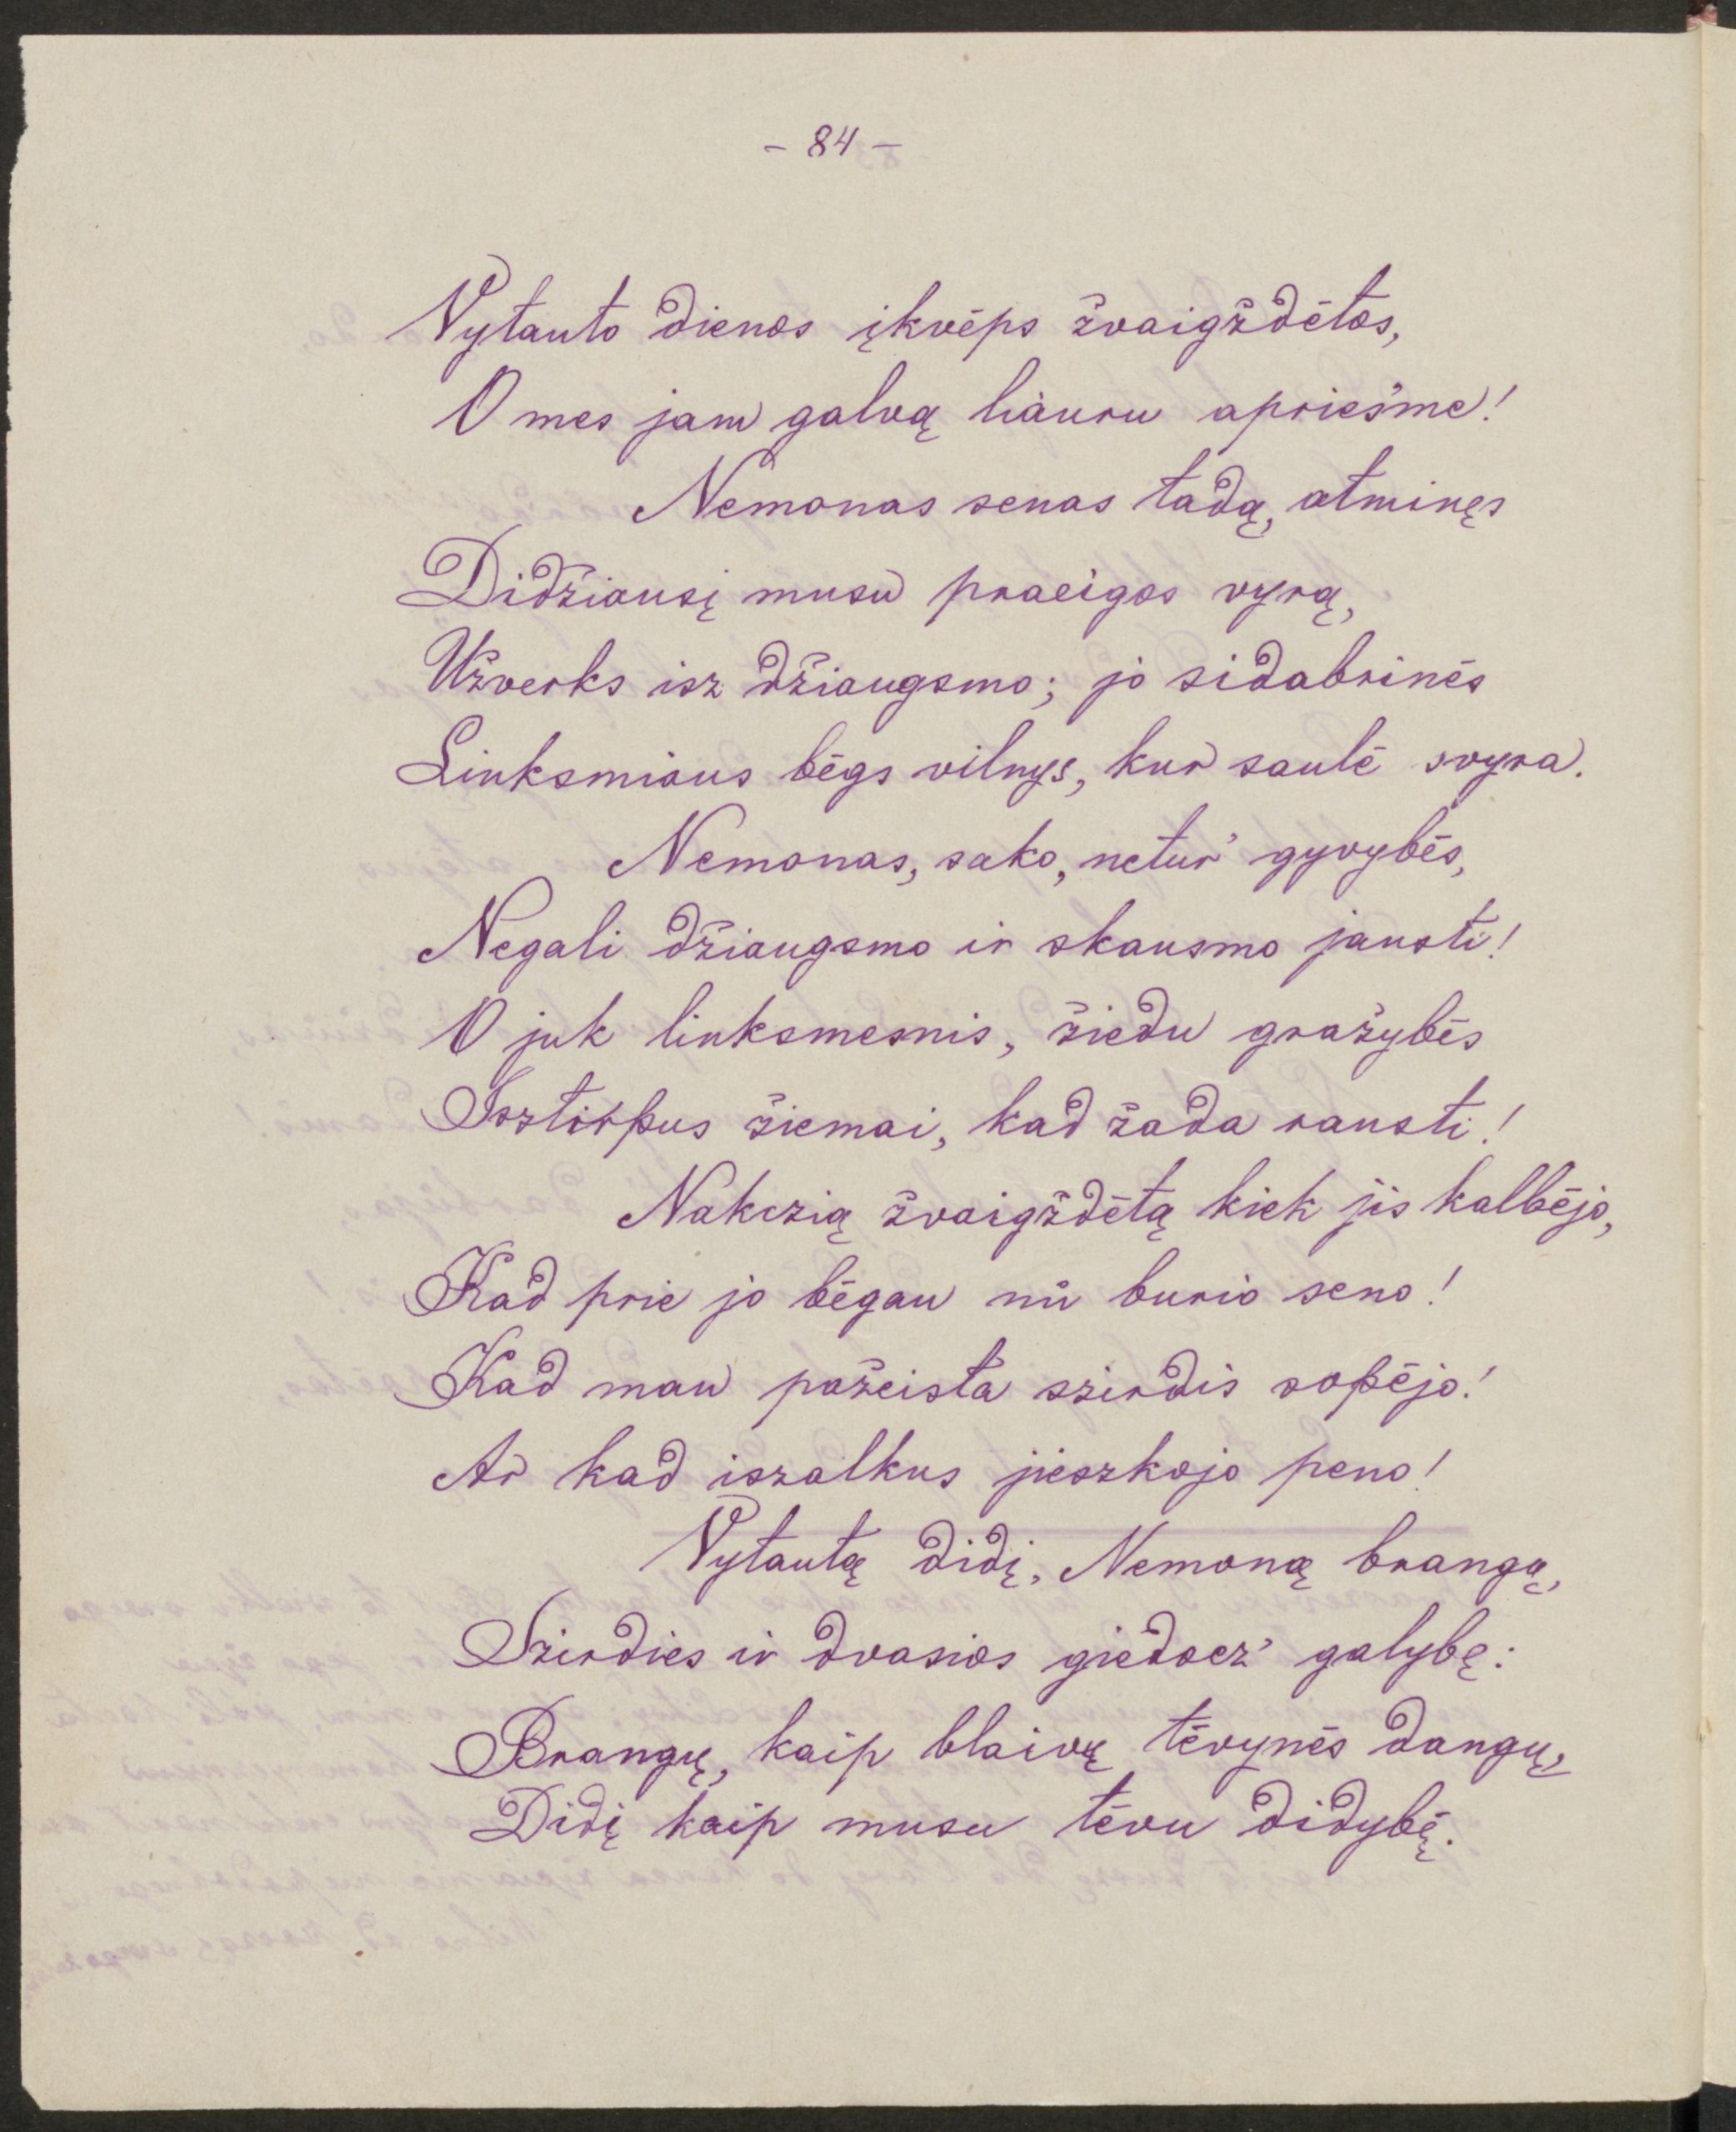 - 84 -
Vytauto dienos įkvėps žvaigždėtos,
O mes jam galvą liauru apriešme!
Nemonas senas tadą, atminęs
Didžiausį musu praeigos vyrą,
Užverks isz džiaugsmo; jo sidabrinės
Linksmiaus bėgs vilnys, kur saulė svyra.
Nemonas, sako, netur' gyvybės,
Negali džiaugsmo ir skausmo jausti!
O juk linksmesnis, žiedu gražybės
Isztirpus žiemai, kad žada rausti!
Nakczią žvaigždėtą kiek jis kalbėjo,
Kad prie jo bėgau nů burio seno!
Kad man pažeista szirdis sopėjo!
Ar kad iszalkus jieszkojo peno!
Vytautą didį, Nemoną brangų,
Szirdies ir dvasios giedocz' galybę:
Brangų, kaip blaivų tėvynės dangų,
Didį kaip musu tėvu didybę.